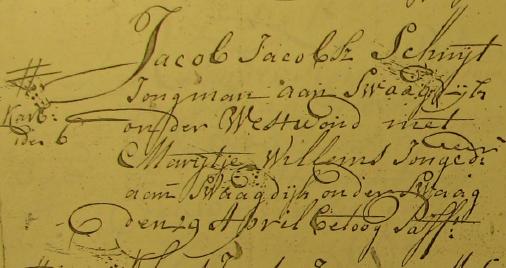 Jacob Jacobsz Schuijt
Jongman aan Swaagdijk
onder Westwoud met
Marijtje Willems Jonged:
aan Swaagdijk onder Swaag
den 29 April betoog Pass: